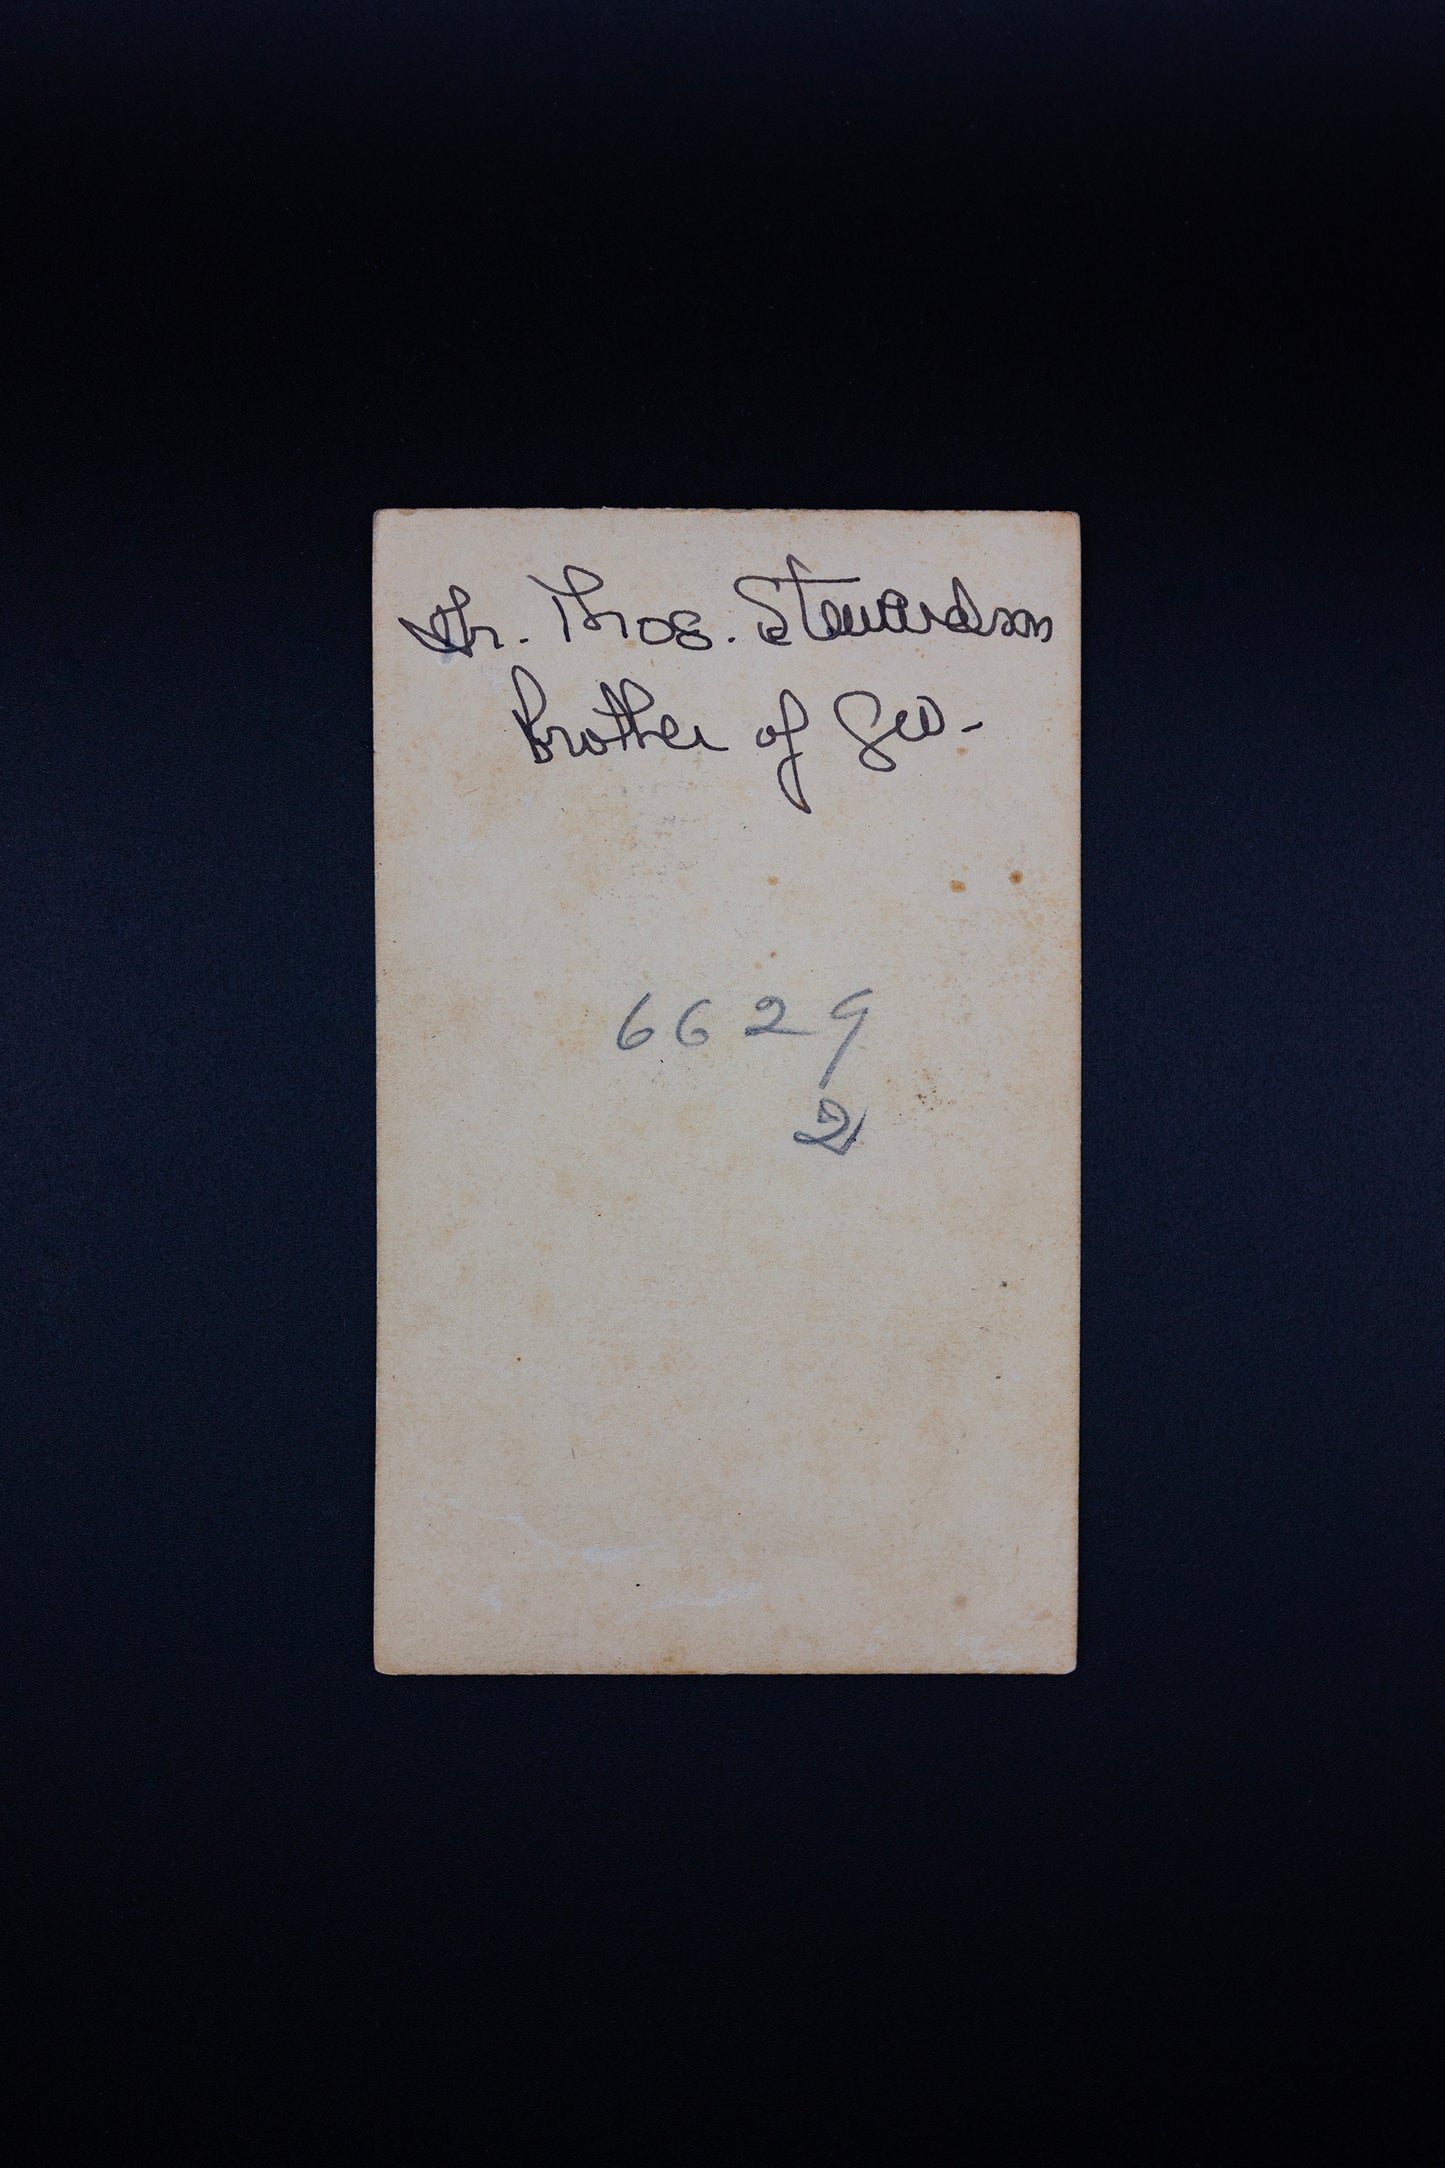 Dr. Thos. Stewardson
Brother of Geo-
6629
2